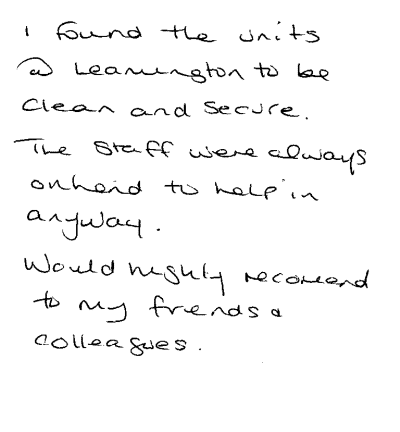 I found the units
@ Leamington to be
clean and secure.
The staff were always
onhand to help in
anyway.
Would highly recomend
to my friends &
colleagues.